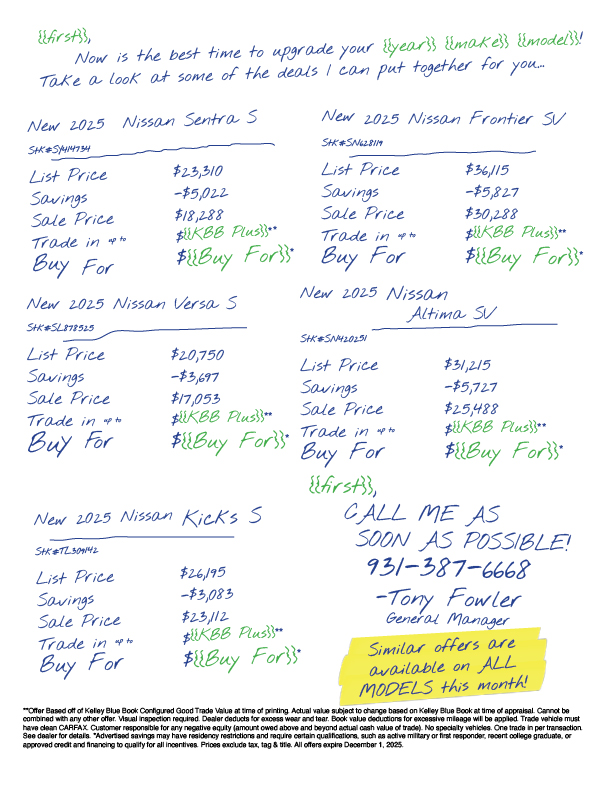 {{first}},
Now is the best time to upgrade your {{year}} {{make}} {{model}}!
Take a look at some of the deals I can put together for you...
New 2025 Nissan Sentra S
Stk#SY414734
List Price $23,310
Savings -$5,022
Sale Price $18,288
Trade in up to ${{KBB Plus}}**
Buy For ${{Buy For}}*
New 2025 Nissan Frontier SV
Stk#SN628119
List Price $36,115
Savings -$5,827
Sale Price $30,288
Trade in up to ${{KBB Plus}}**
Buy For ${{Buy For}}*
New 2025 Nissan Versa S
Stk#SL878525
List Price $20,750
Savings -$3,697
Sale Price $17,053
Trade in up to ${{KBB Plus}}**
Buy For ${{Buy For}}*
New 2025 Nissan
Altima SV
Stk#SN420251
List Price $31,215
Savings -$5,727
Sale Price $25,488
Trade in up to ${{KBB Plus}}**
Buy For ${{Buy For}}*
New 2025 Nissan Kicks S
Stk#TL309142
List Price $26,195
Savings -$3,083
Sale Price $23,112
Trade in up to ${{KBB Plus}}**
Buy For ${{Buy For}}*
{{first}},
CALL ME AS
SOON AS POSSIBLE!
931-387-6668
-Tony Fowler
General Manager
Similar offers are
available on ALL
MODELS this month!
**Offer Based off of Kelley Blue Book Configured Good Trade Value at time of printing. Actual value subject to change based on Kelley Blue Book at time of appraisal. Cannot be
combined with any other offer. Visual inspection required. Dealer deducts for excess wear and tear. Book value deductions for excessive mileage will be applied. Trade vehicle must
have clean CARFAX. Customer responsible for any negative equity (amount owed above and beyond actual cash value of trade). No specialty vehicles. One trade in per transaction.
See dealer for details. *Advertised savings may have residency restrictions and require certain qualifications, such as active military or first responder, recent college graduate, or
approved credit and financing to qualify for all incentives. Prices exclude tax, tag & title. All offers expire December 1, 2025.